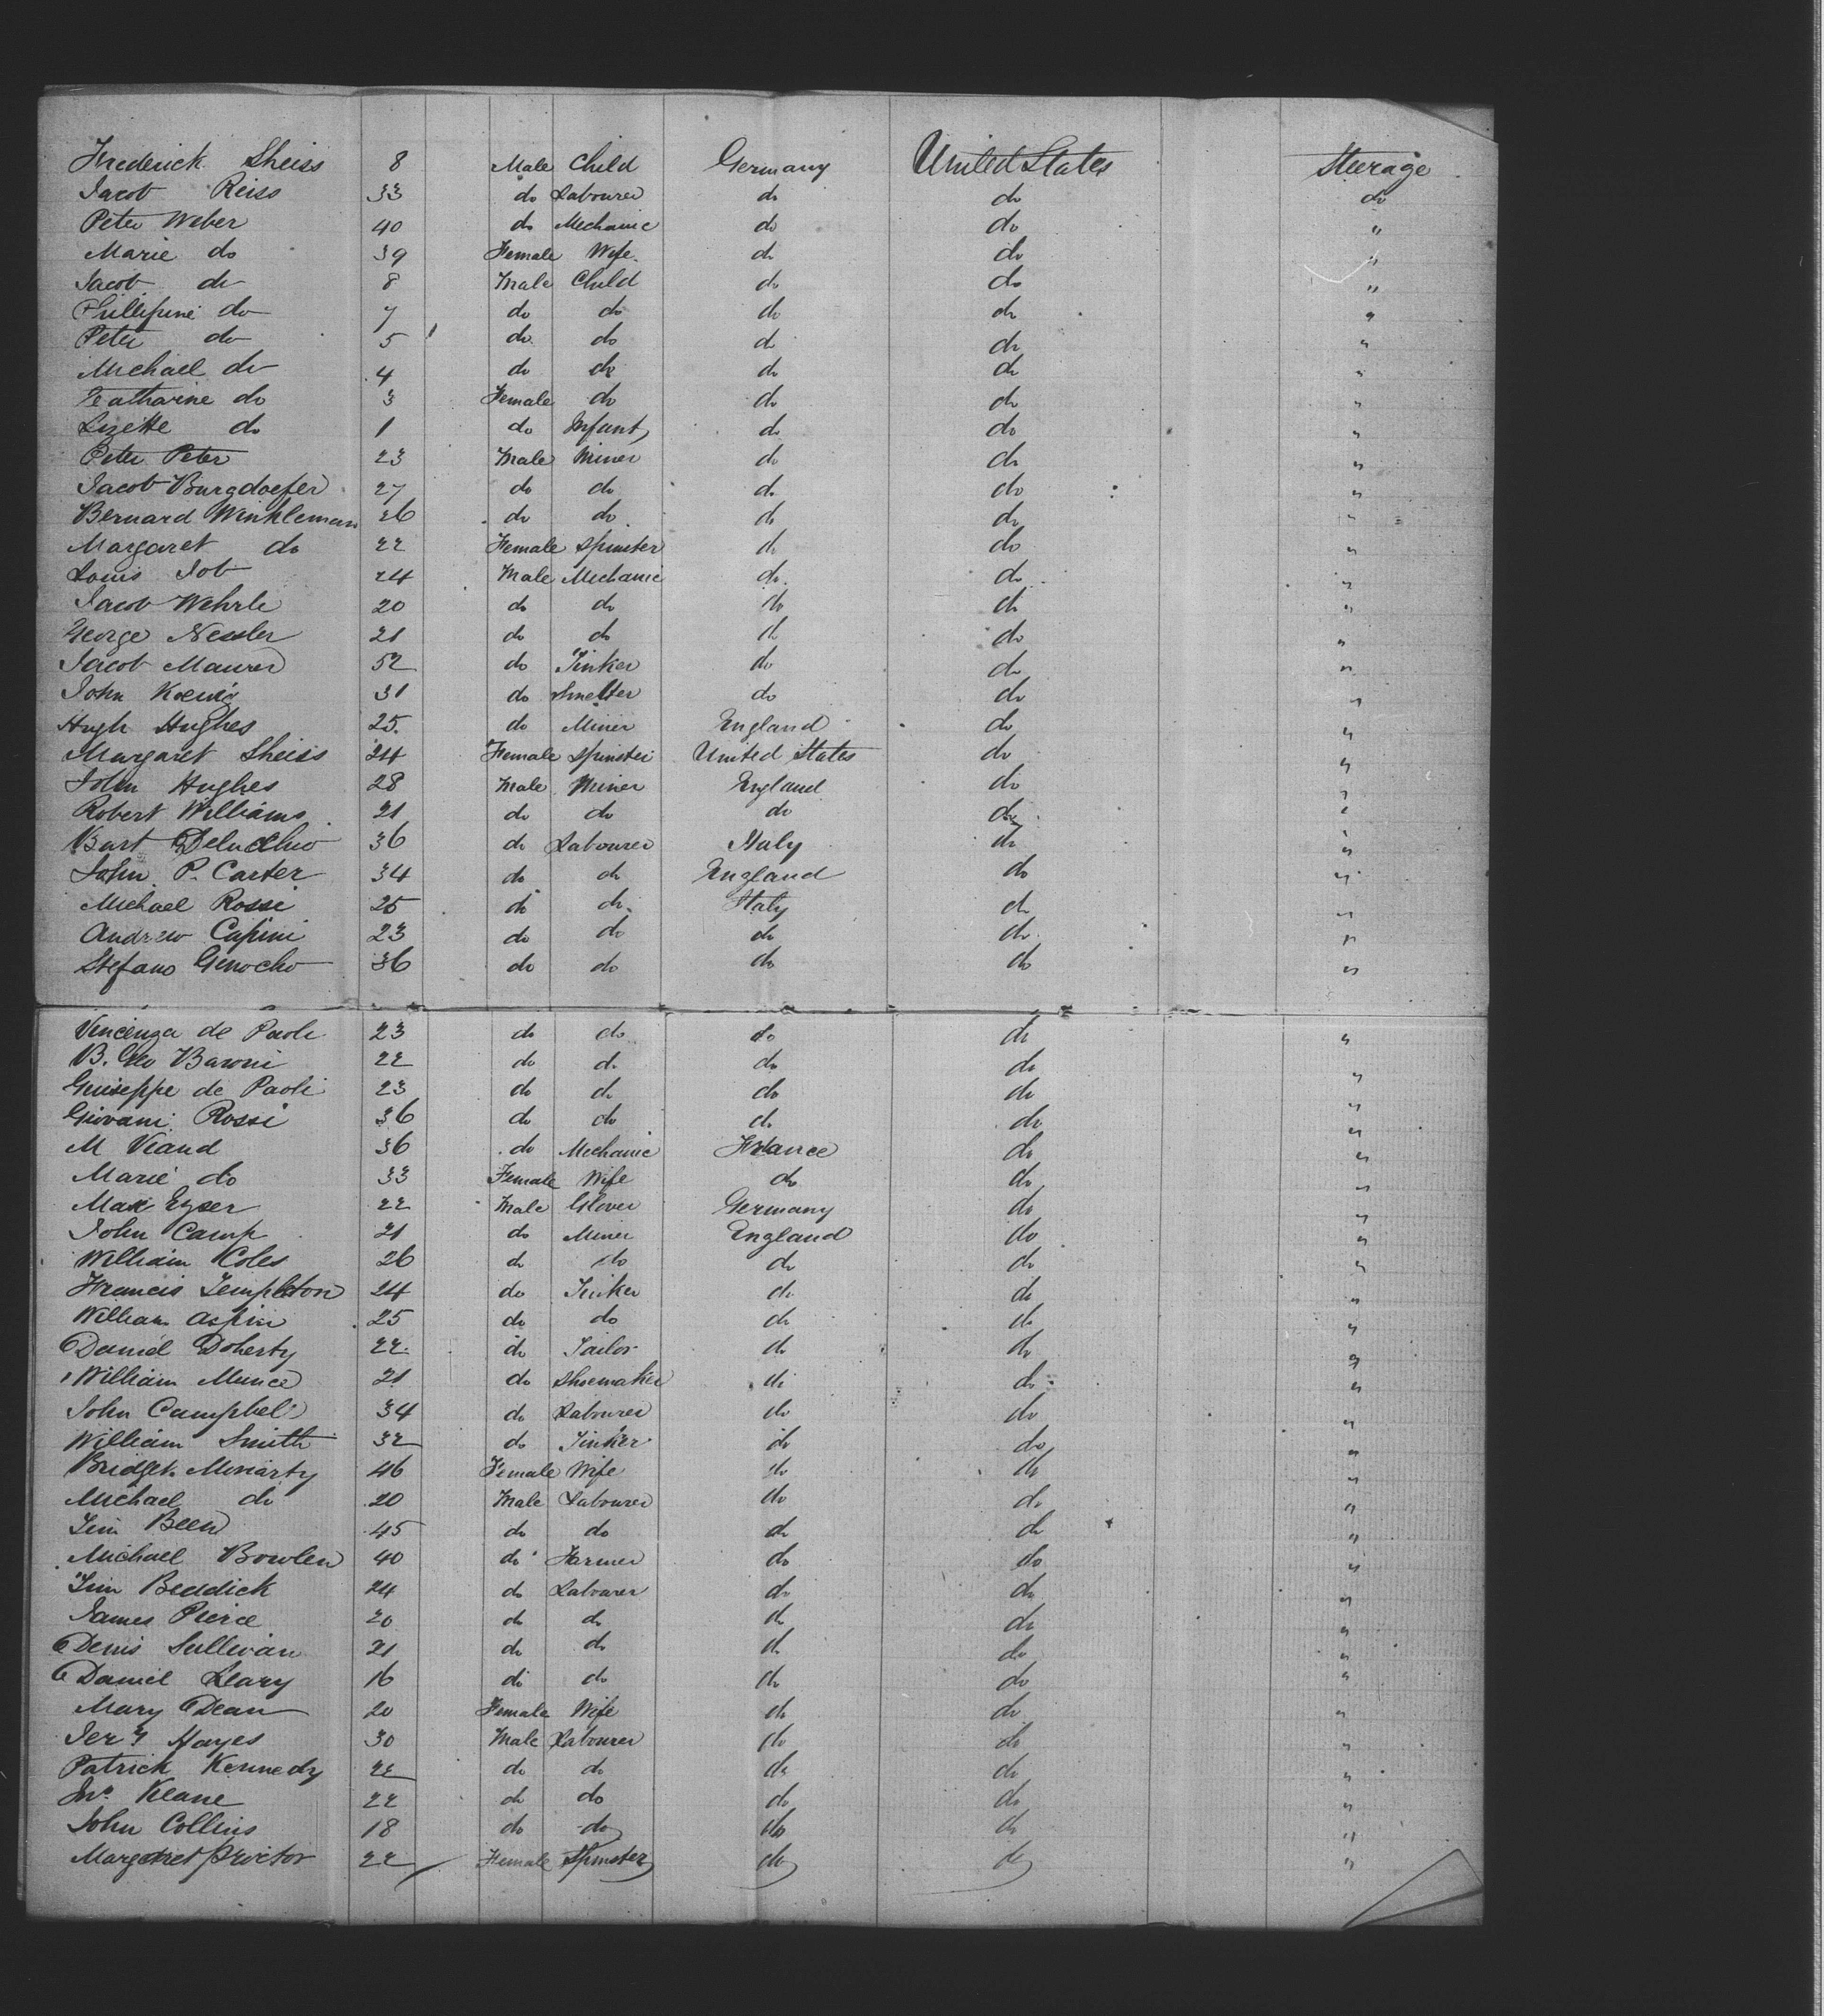 Frederick Sheiss 8 Male Child Germany United States Steerage
Jacob Reiss 33 do Labourer do do do
Peter Weber 40 do Mechanic do do "
Marie do 39 Female Wife do do "
Jacob do 8 Male Child do do "
Phillipine do 7 do do do do "
Peter do 5 do do do do "
Michael do 4 do do do do "
Catharine do 3 Female do do do "
Lizette do 1 do Infant do do "
Peter Peter 23 Male Miner do do "
Jacob Burgdoefer 27 do do do do "
Bernard Winkleman 26 do do do do "
Margaret do 22 Female Spinster do do "
Louis Job 24 Male Mechanic do do "
Jacob Wehrle 20 do do do do "
George Nessler 21 do do do do "
Jacob Maurer 52 do Tinker do do "
John Koenig 31 do Smelter do do "
Hugh Hughes 25 do Miner England do "
Margaret Sheiss 24 Female Spinster United States do "
John Hughes 28 Male Miner England do "
Robert Williams 21 do do do do "
Bart Delucchio 36 do Labourer Italy do "
John P. Carter 34 do do England do "
Michael Rossi 25 do do Italy do "
Andrew Capini 23 do do do do "
Stefano Genocho 36 do do do do "
Vincenza de Paoli 23 do do do do "
B. Geo Baroni 22 do do do do "
Guiseppe de Paoli 23 do do do do "
Giovani Rossi 36 do do do do "
M Viaud 36 do Mechanic France do "
Marie do 33 Female Wife do do "
Max Eyser 22 Male Glover Germany do "
John Camp 21 do Miner England do "
William Coles 26 do do do do "
Francis Templeton 24 do Tinker do do "
William Aspin 25 do do do do "
Daniel Doherty 22 do Tailor do do "
William Munce 21 do Shoemaker do do "
John Campbell 34 do Labourer do do "
William Smith 32 do Tinker do do "
Bridget Moriarty 46 Female Wife do do "
Michael do 20 Male Labourer do do "
Jim Been 45 do do do do "
Michael Bowlen 40 do Farmer do do "
Jim Beddick 24 do Labourer do do "
James Pierce 20 do do do do "
Denis Sullivan 21 do do do do "
Daniel Leary 16 do do do do "
Mary Dean 20 Female Wife do do "
Jery Hayes 30 Male Labourer do do "
Patrick Kennedy 22 do do do do "
Jno. Keane 22 do do do do "
John Collins 18 do do do do "
Margaret Proctor 22 Female Spinster do do "